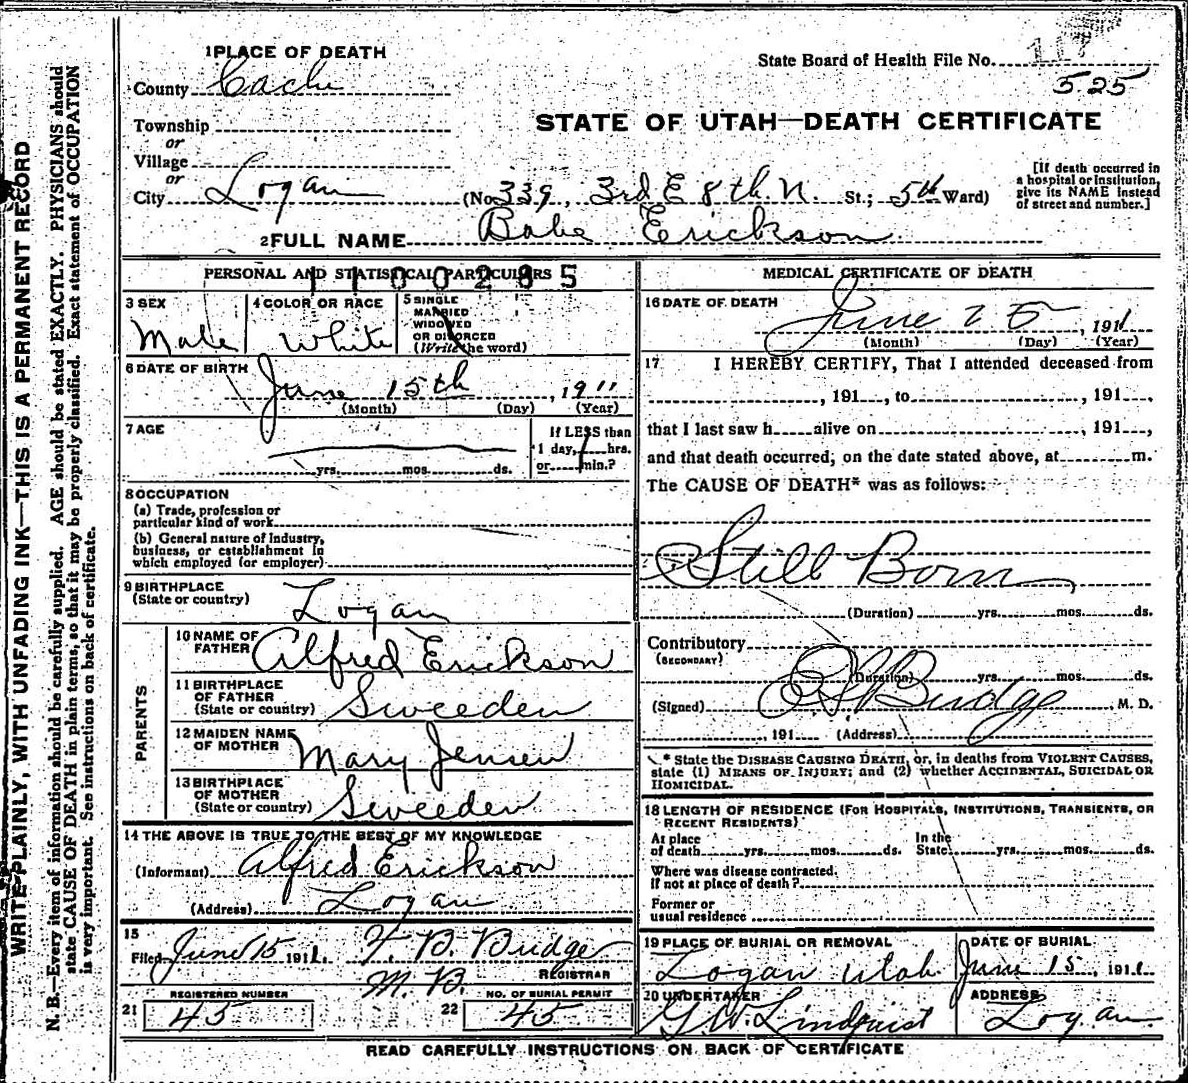 WRITE PLAINLY, WITH UNFADING INK—THIS IS A PERMANENT RECORD
N. B.—Every item of information should be carefully supplied. AGE should be stated EXACTLY. PHYSICIANS should
state CAUSE OF DEATH in plain terms, so that it may be properly classified. Exact statement of OCCUPATION
is very important. See instructions on back of certificate.
1 PLACE OF DEATH
State Board of Health File No.
525
County Cache
Township
or
Village
or
City Logan
STATE OF UTAH—DEATH CERTIFICATE
(No. 339, 3rd E 8th. N. St.; 5th Ward)
[If death occurred in
a hospital or institution,
give its NAME instead
of street and number.]
2 FULL NAME Babe Erickson
PERSONAL AND STATISTICAL PARTICULARS
1100285
3 SEX
Male
4 COLOR OR RACE
White
5 SINGLE
MARRIED
WIDOWED
OR DIVORCED
(Write the word)
6 DATE OF BIRTH
June 15th, 1911
(Month) (Day) (Year)
7 AGE
If LESS than
1 day, hrs.
or min.?
yrs. mos. ds.
8 OCCUPATION
(a) Trade, profession or
particular kind of work
(b) General nature of industry,
business, or establishment in
which employed (or employer)
9 BIRTHPLACE
(State or country)
Logan
PARENTS
10 NAME OF
FATHER
Alfred Erickson
11 BIRTHPLACE
OF FATHER
(State or country)
Sweeden
12 MAIDEN NAME
OF MOTHER
Mary Jensen
13 BIRTHPLACE
OF MOTHER
(State or country)
Sweeden
14 THE ABOVE IS TRUE TO THE BEST OF MY KNOWLEDGE
(Informant) Alfred Erickson
(Address) Logan
15
Filed June 15 1911. F. B. Budge
M. D. REGISTRAR
REGISTERED NUMBER
21 45
NO. OF BURIAL PERMIT
22 45
MEDICAL CERTIFICATE OF DEATH
16 DATE OF DEATH
June 15, 1911
(Month) (Day) (Year)
17 I HEREBY CERTIFY, That I attended deceased from
, 191 , to , 191 ,
that I last saw h alive on , 191 ,
and that death occurred, on the date stated above, at m.
The CAUSE OF DEATH* was as follows:
Still Born
(Duration) yrs. mos. ds.
Contributory
(SECONDARY)
(Duration) yrs. mos. ds.
(Signed) Budge M. D.
, 191 (Address)
* State the DISEASE CAUSING DEATH, or, in deaths from VIOLENT CAUSES,
state (1) MEANS OF INJURY; and (2) whether ACCIDENTAL, SUICIDAL OR
HOMICIDAL.
18 LENGTH OF RESIDENCE (FOR HOSPITALS, INSTITUTIONS, TRANSIENTS, OR
RECENT RESIDENTS)
At place
of death yrs. mos. ds.
In the
State yrs. mos. ds.
Where was disease contracted,
If not at place of death?
Former or
usual residence
19 PLACE OF BURIAL OR REMOVAL
Logan Utah
DATE OF BURIAL
June 15, 1911.
20 UNDERTAKER
G. W. Lindquist
ADDRESS
Logan.
READ CAREFULLY INSTRUCTIONS ON BACK OF CERTIFICATE